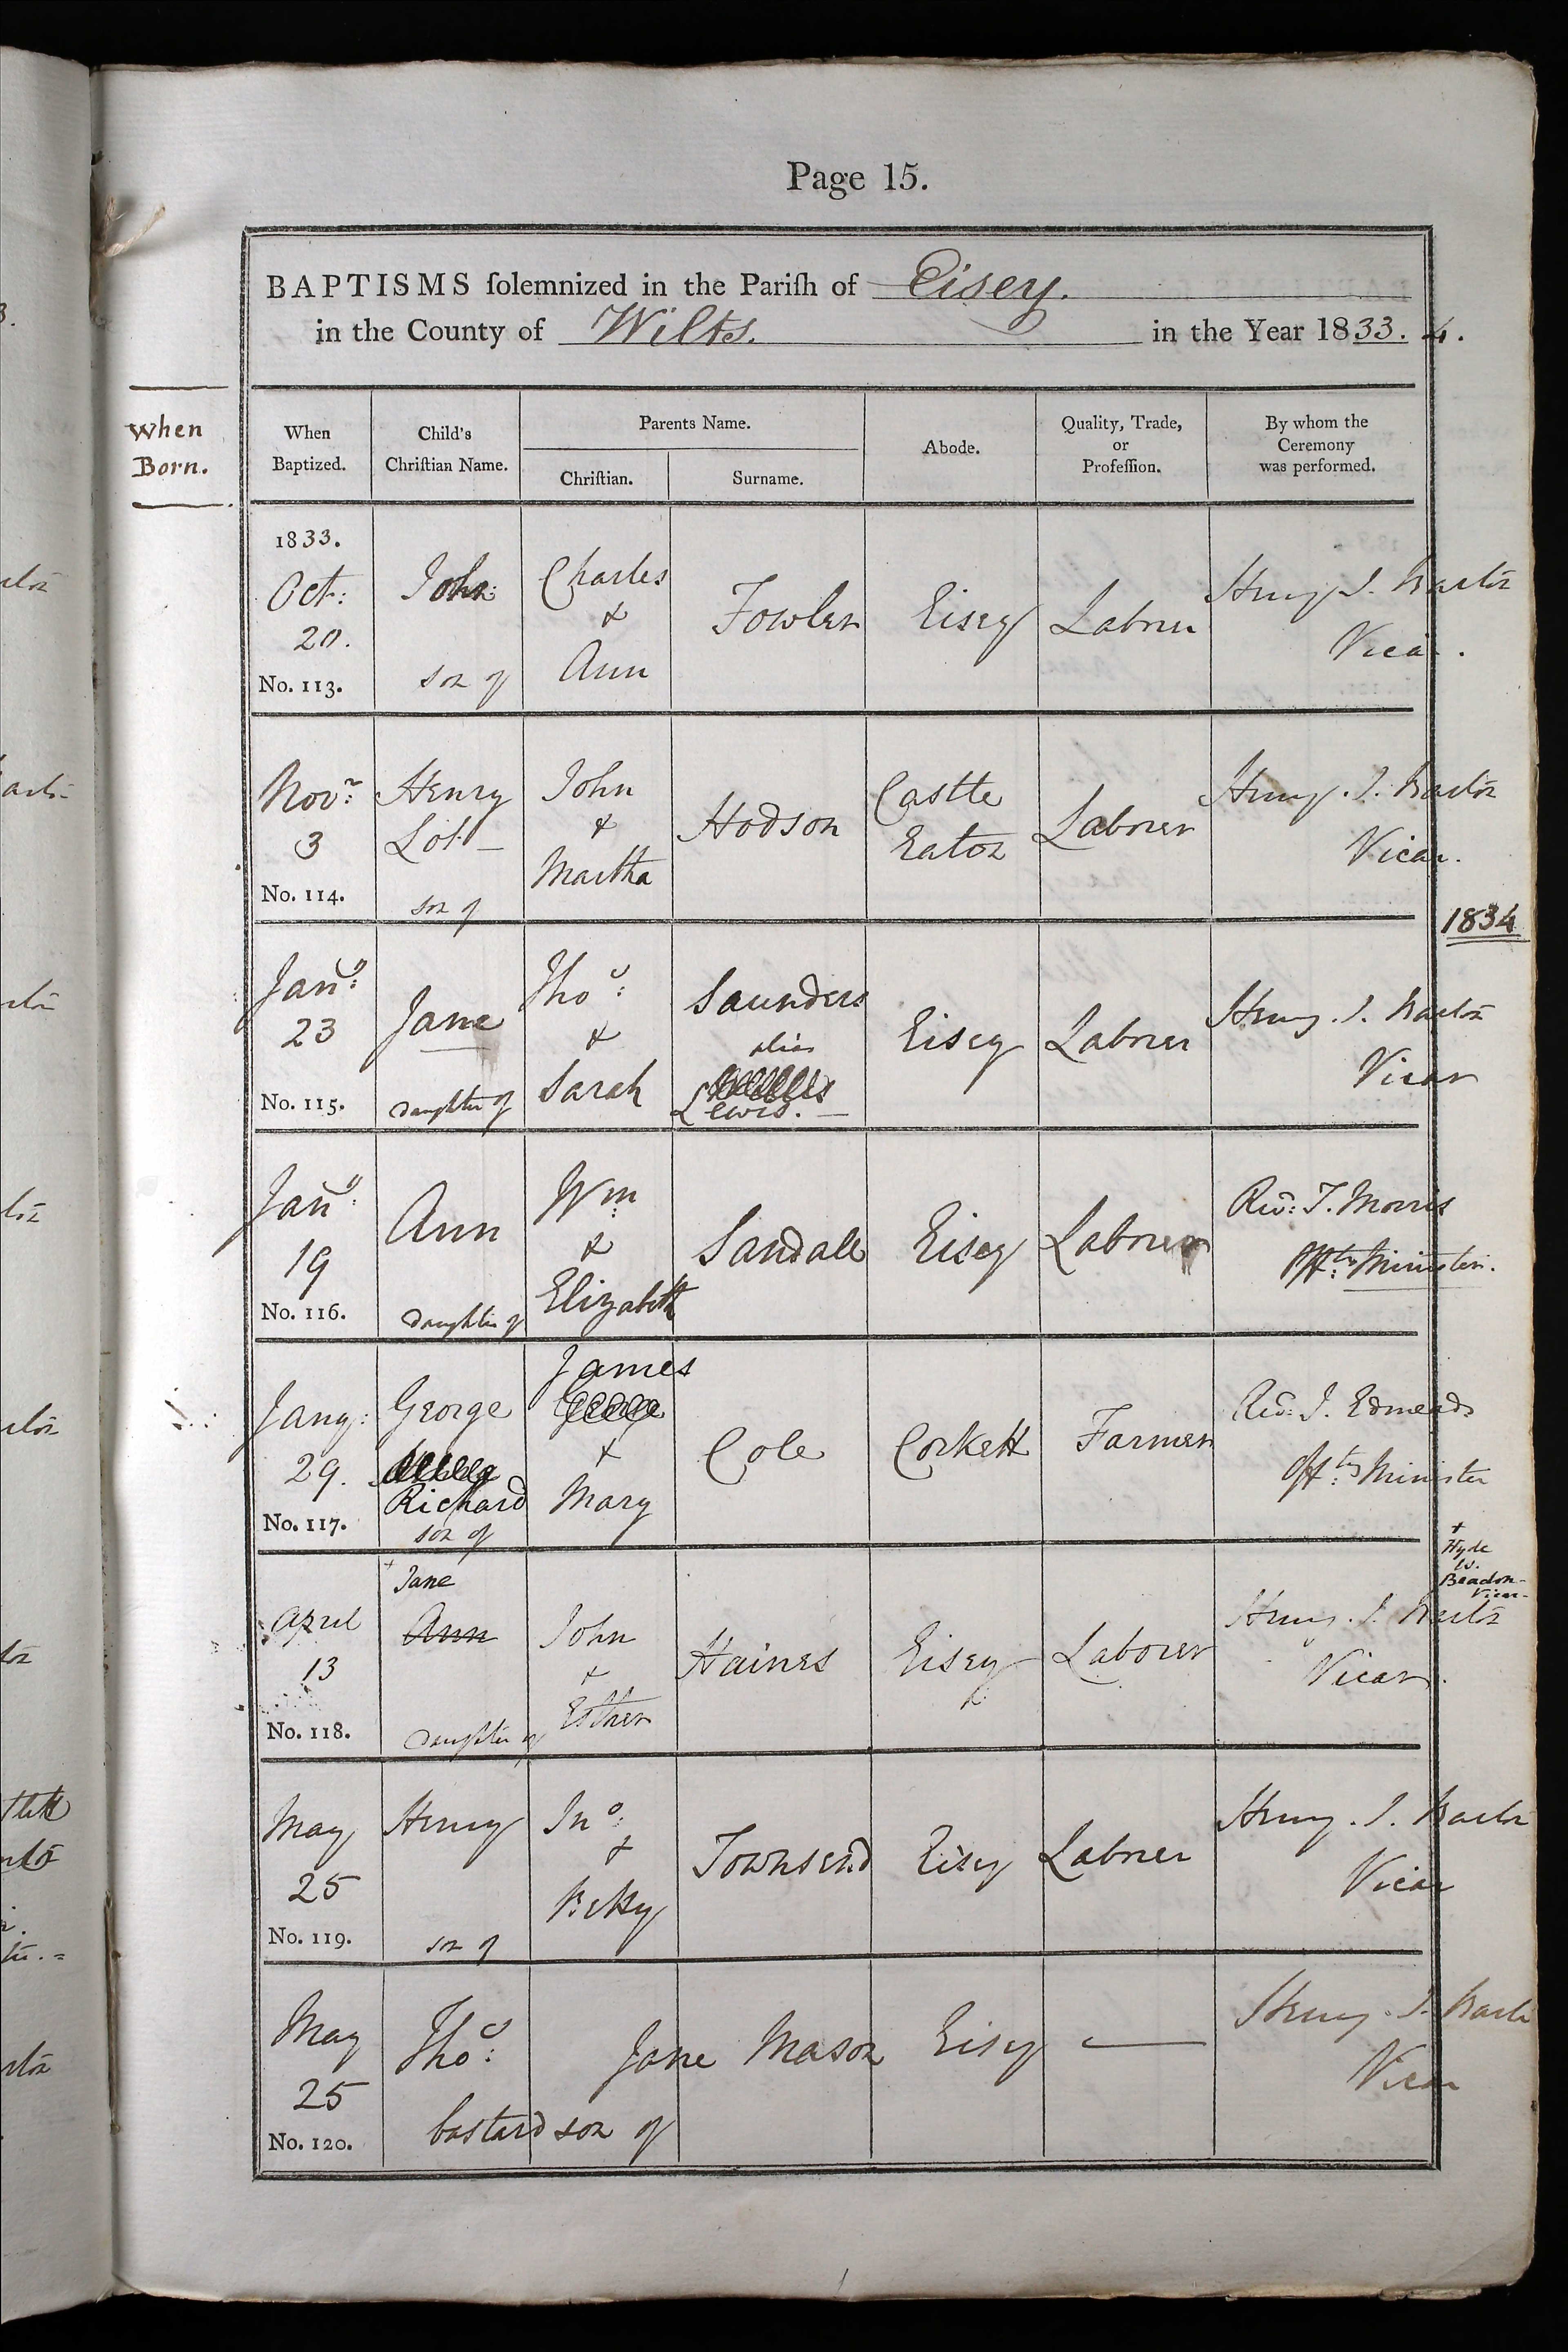 Page 15.
BAPTISMS ſolemnized in the Pariſh of Eisey.
in the County of Wilts. in the Year 1833. 4.
When
Born.
When
Baptized.
Child's
Chriſtian Name.
Parents Name.
Chriſtian.
Surname.
Abode.
Quality, Trade,
or
Profeſſion.
By whom the
Ceremony
was performed.
1833.
Oct:
20.
No. 113.
John
son of
Charles
&
Ann
Fowler
Eisey
Labrer
Henry J.
Vicar.
Novr:
3
No. 114.
Henry
Lot
son of
John
&
Martha
Hodson
Castle
Eaton
Laborer
Henry. J.
Vicar.
1834
Jany:
23
No. 115.
Jane
Daughter of
Thos:
&
Sarah
Saunders
alias
Lewis. —
Eisey
Labrer
Henry. J.
Vicar
Jany:
19
No. 116.
Ann
Daughter of
Wm:
&
Elizabeth
Sandale
Eisey
Laborer
Revd: T. Morris
Offtg: Minister.
Jany:
29.
No. 117.
George
Richard
son of
James
&
Mary
Cole
Corkett
Farmer
Revd: J. Edmeads
Offtg: Minister
April
13
No. 118.
+ Jane
Ann
Daughter of
John
&
Esther
Haines
Eisey
Laborer
+
Hyde
W.
Beadon-
Vicar-
Henry. J.
Vicar.
May
25
No. 119.
Henry
son of
Jno:
&
Betty
Townsend
Eisey
Labrer
Henry. J.
Vicar
May
25
No. 120.
Thos:
bastard son of
Jane Mason
Eisey
—
Henry. J.
Vicar